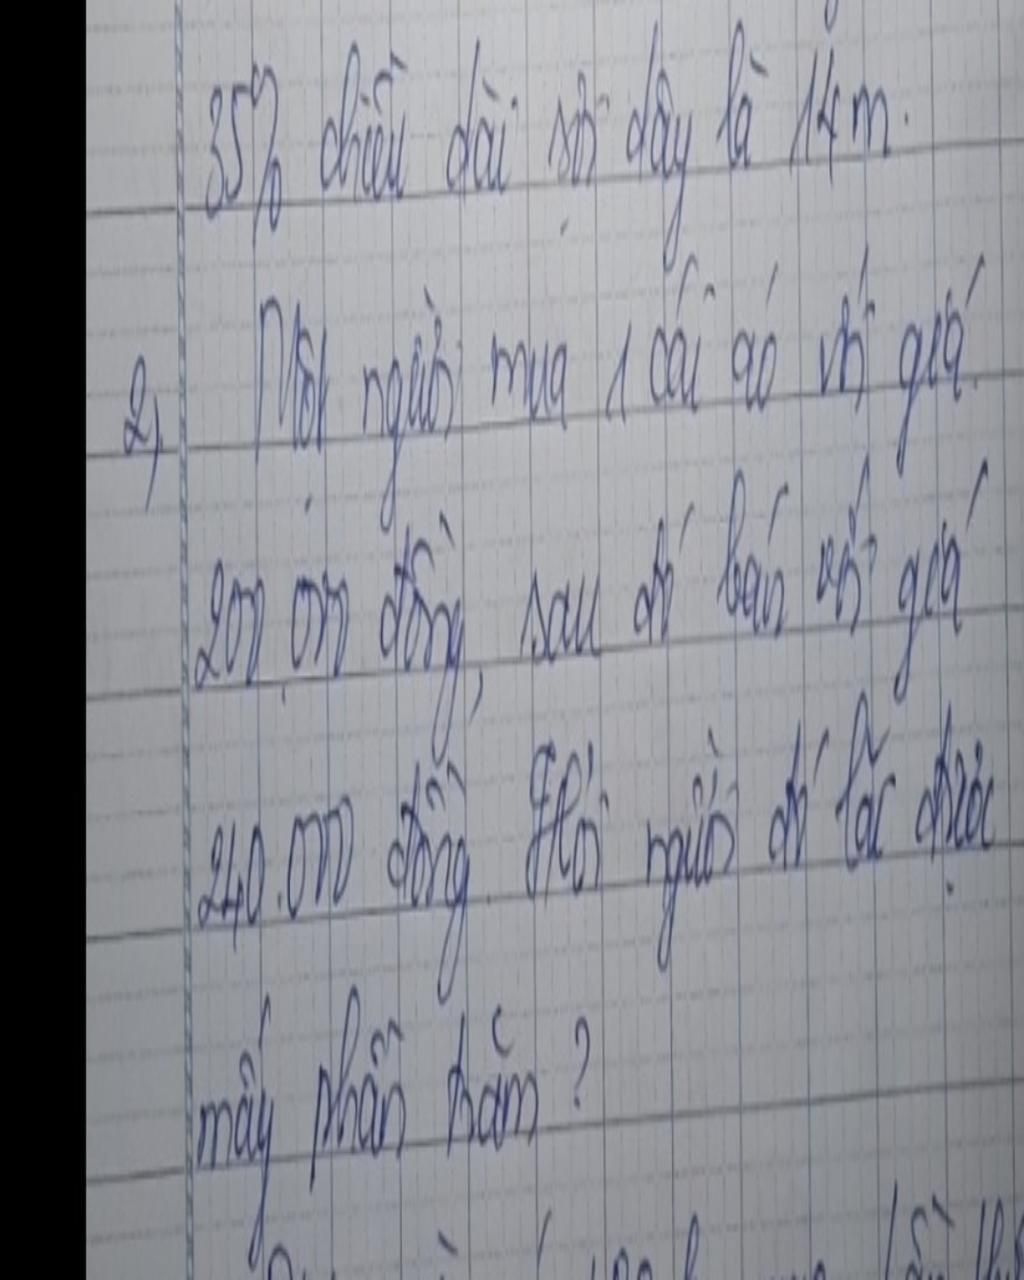 35% chiều dài sợi dây là 14m.
2, Một người mua 1 cái áo với giá
200.000 đồng, sau đó bán với giá
240.000 đồng. Hỏi người đó lãi được
mấy phần trăm?